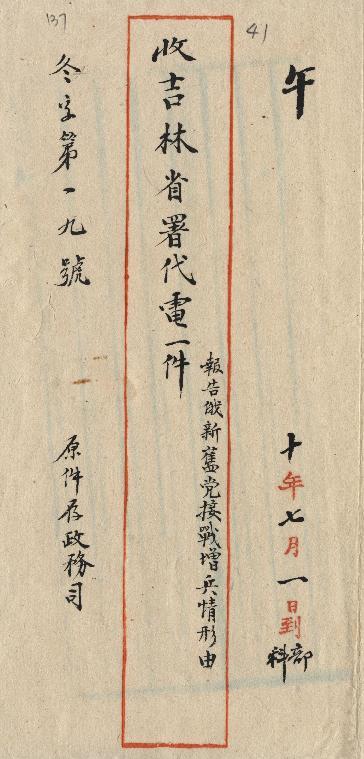 137
41
午
十年七月一日到
部
科
收吉林省署代電一件
報告俄新舊党接戰增兵情形由
冬字第一九號
原件存政務司